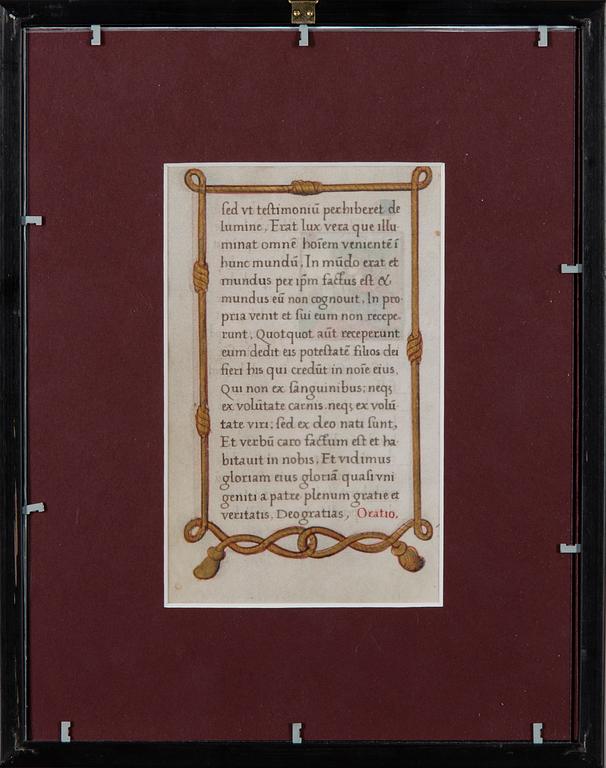 sed vt testimoniū perhiberet de
lumine. Erat lux vera que illu-
minat omnē hoīem venientē ī
hunc mundū. In mūdo erat et
mundus per ip̄m factus est &
mundus eū non cognouit. In pro
pria venit et sui eum non recepe-
runt. Quotquot aūt receperunt
eum dedit eis potestatē filios dei
fieri his qui credūt in noīe eius.
Qui non ex sanguinibus: neqꝫ
ex volūtate carnis neqꝫ ex volū
tate viri: sed ex deo nati sunt,
Et verbū caro factum est et ha-
bitauit in nobis. Et vidimus
gloriam eius gloriā quasi vni
geniti a patre plenum gratie et
veritatis. Deo gratias, Oratio.